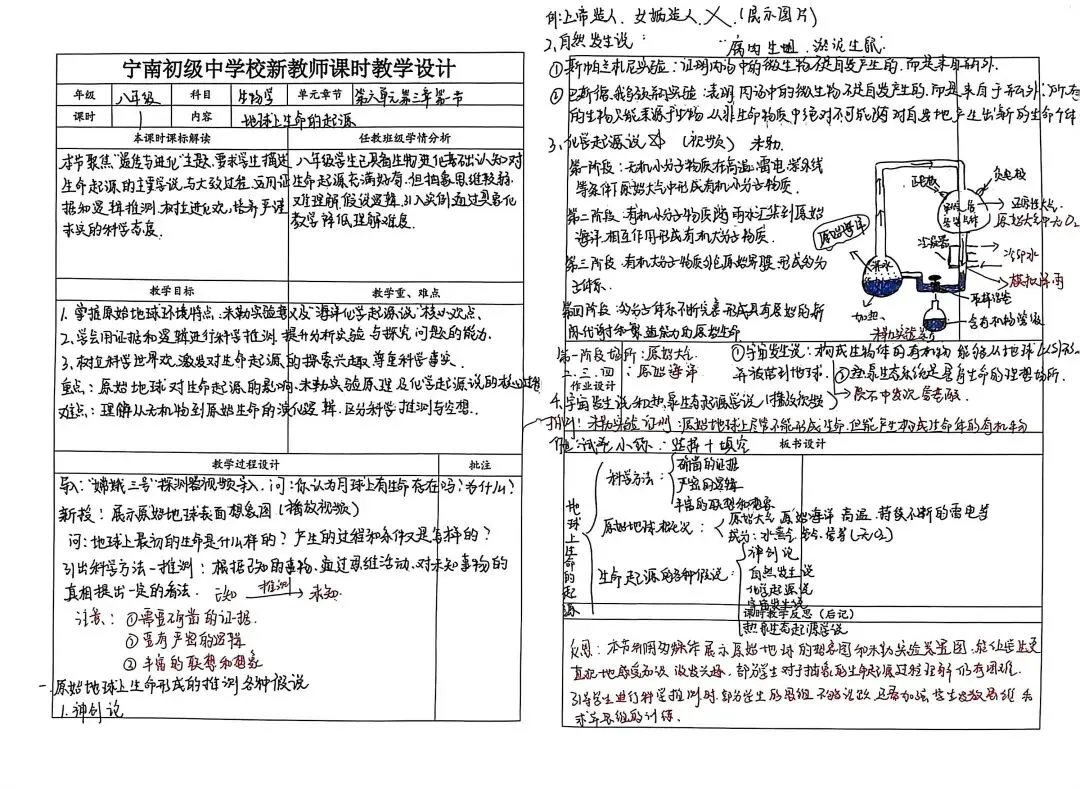 宁南初级中学校新教师课时教学设计
年级 八年级 科目 生物学 单元章节 第六单元第三章第一节
课时 1 内容 地球上生命的起源
本课时课标解读 任教班级学情分析
本节聚焦“遗传与进化”主题，要求学生描述
生命起源的主要学说与大致过程，运用证
据和逻辑推测，树立进化观，培养严谨
求实的科学态度.
八年级学生已具有生物进化基础认知对
生命起源充满好奇.但抽象思维较弱.
难理解假说逻辑.引入实例通过具象化
教学降低理解难度.
教学目标 教学重、难点
1. 掌握原始地球环境特点、米勒实验意义及“海洋化学起源说”核心观点.
2. 学会用证据和逻辑进行科学推测，提升分析实验与探究问题的能力.
3. 树立科学世界观，激发对生命起源的探索兴趣，尊重科学事实.
重点：原始地球对生命起源的影响.米勒实验原理及化学起源说的核心过程
难点：理解从无机物到原始生命的演化逻辑.区分科学推测与空想.
教学过程设计 批注
导入：“嫦娥三号”探测器视频导入，问：你认为月球上有生命存在吗？为什么？
新授：展示原始地球表面想象图（播放视频）
问：地球上最初的生命是什么样的？产生的过程和条件又是怎样的？
引出科学方法一推测：根据已知的事物，通过思维活动，对未知事物的
真相提出一定的看法. 已知 推测 未知.
注意：①需要确凿的证据.
②要有严密的逻辑
③丰富的联想和想象
一、原始地球上生命形成的推测各种假说
1. 神创论
例：上帝造人、女娲造人、（展示图片）
2、自然发生说： “腐肉生蛆、淤泥生鼠.
①斯帕兰札尼实验：证明肉汤中的微生物不是自发产生的，而是来自瓶外.
②巴斯德鹅颈瓶实验：表明，肉汤中的微生物不是自发产生的，而是来自于瓶外；所有
的生物只能来源于生物，从非生命物质中绝对不可能随时自发地产生出新的生命个体
3、化学起源说 （视频） 米勒
第一阶段：无机小分子物质在高温、雷电、紫外线
等条件下原始大气中形成有机小分子物质.
第二阶段：有机小分子物质随雨水汇集到原始
海洋，相互作用形成有机大分子物质.
第三阶段：有机大分子物质在原始海洋.形成多分
子体系.
第四阶段：多分子体系不断完善，形成具有原始的新
陈代谢和繁殖能力的原始生命
正电极 负电极
原始大气中无O₂
冷凝器 冷却水
模拟降雨
原始海洋
加热.
取样活塞
含有机物等级
米勒实验装置
第一阶段场所：原始大气
二、三、四：原始海洋
①宇宙发生说：构成生物体的有机物 能够从地球以外形成
并被带到地球. ②热泉生态系统是孕育生命的理想场所.
作业设计
4.宇宙发生说和热泉生态起源学说（播放视频）
米勒实验证明：原始地球上尽管不能形成生命，但能产生构成生物体的有机物
做：试卷小练：选择＋填空
板书设计
地球上生命的起源
科学方法： 确凿的证据
严密的逻辑
丰富的联想和想象
原始地球概况： 原始大气 原始海洋 高温、持续不断的雷电等
成分：水蒸气、氨、甲烷等（无O₂）
生命起源的各种假说： 神创论
自然发生说
化学起源说
宇宙发生说
热泉生态起源学说
课时教学反思（后记）
反思：本节利用视频等展示原始地球的想象图和米勒实验装置图，能让学生更
直观地感受知识 激发兴趣，部分学生对于抽象的生命起源过程理解仍有困难.
引导学生进行科学推测时.部分学生的思维不够活跃 还需加强学生发散思维和
求异思维的训练.